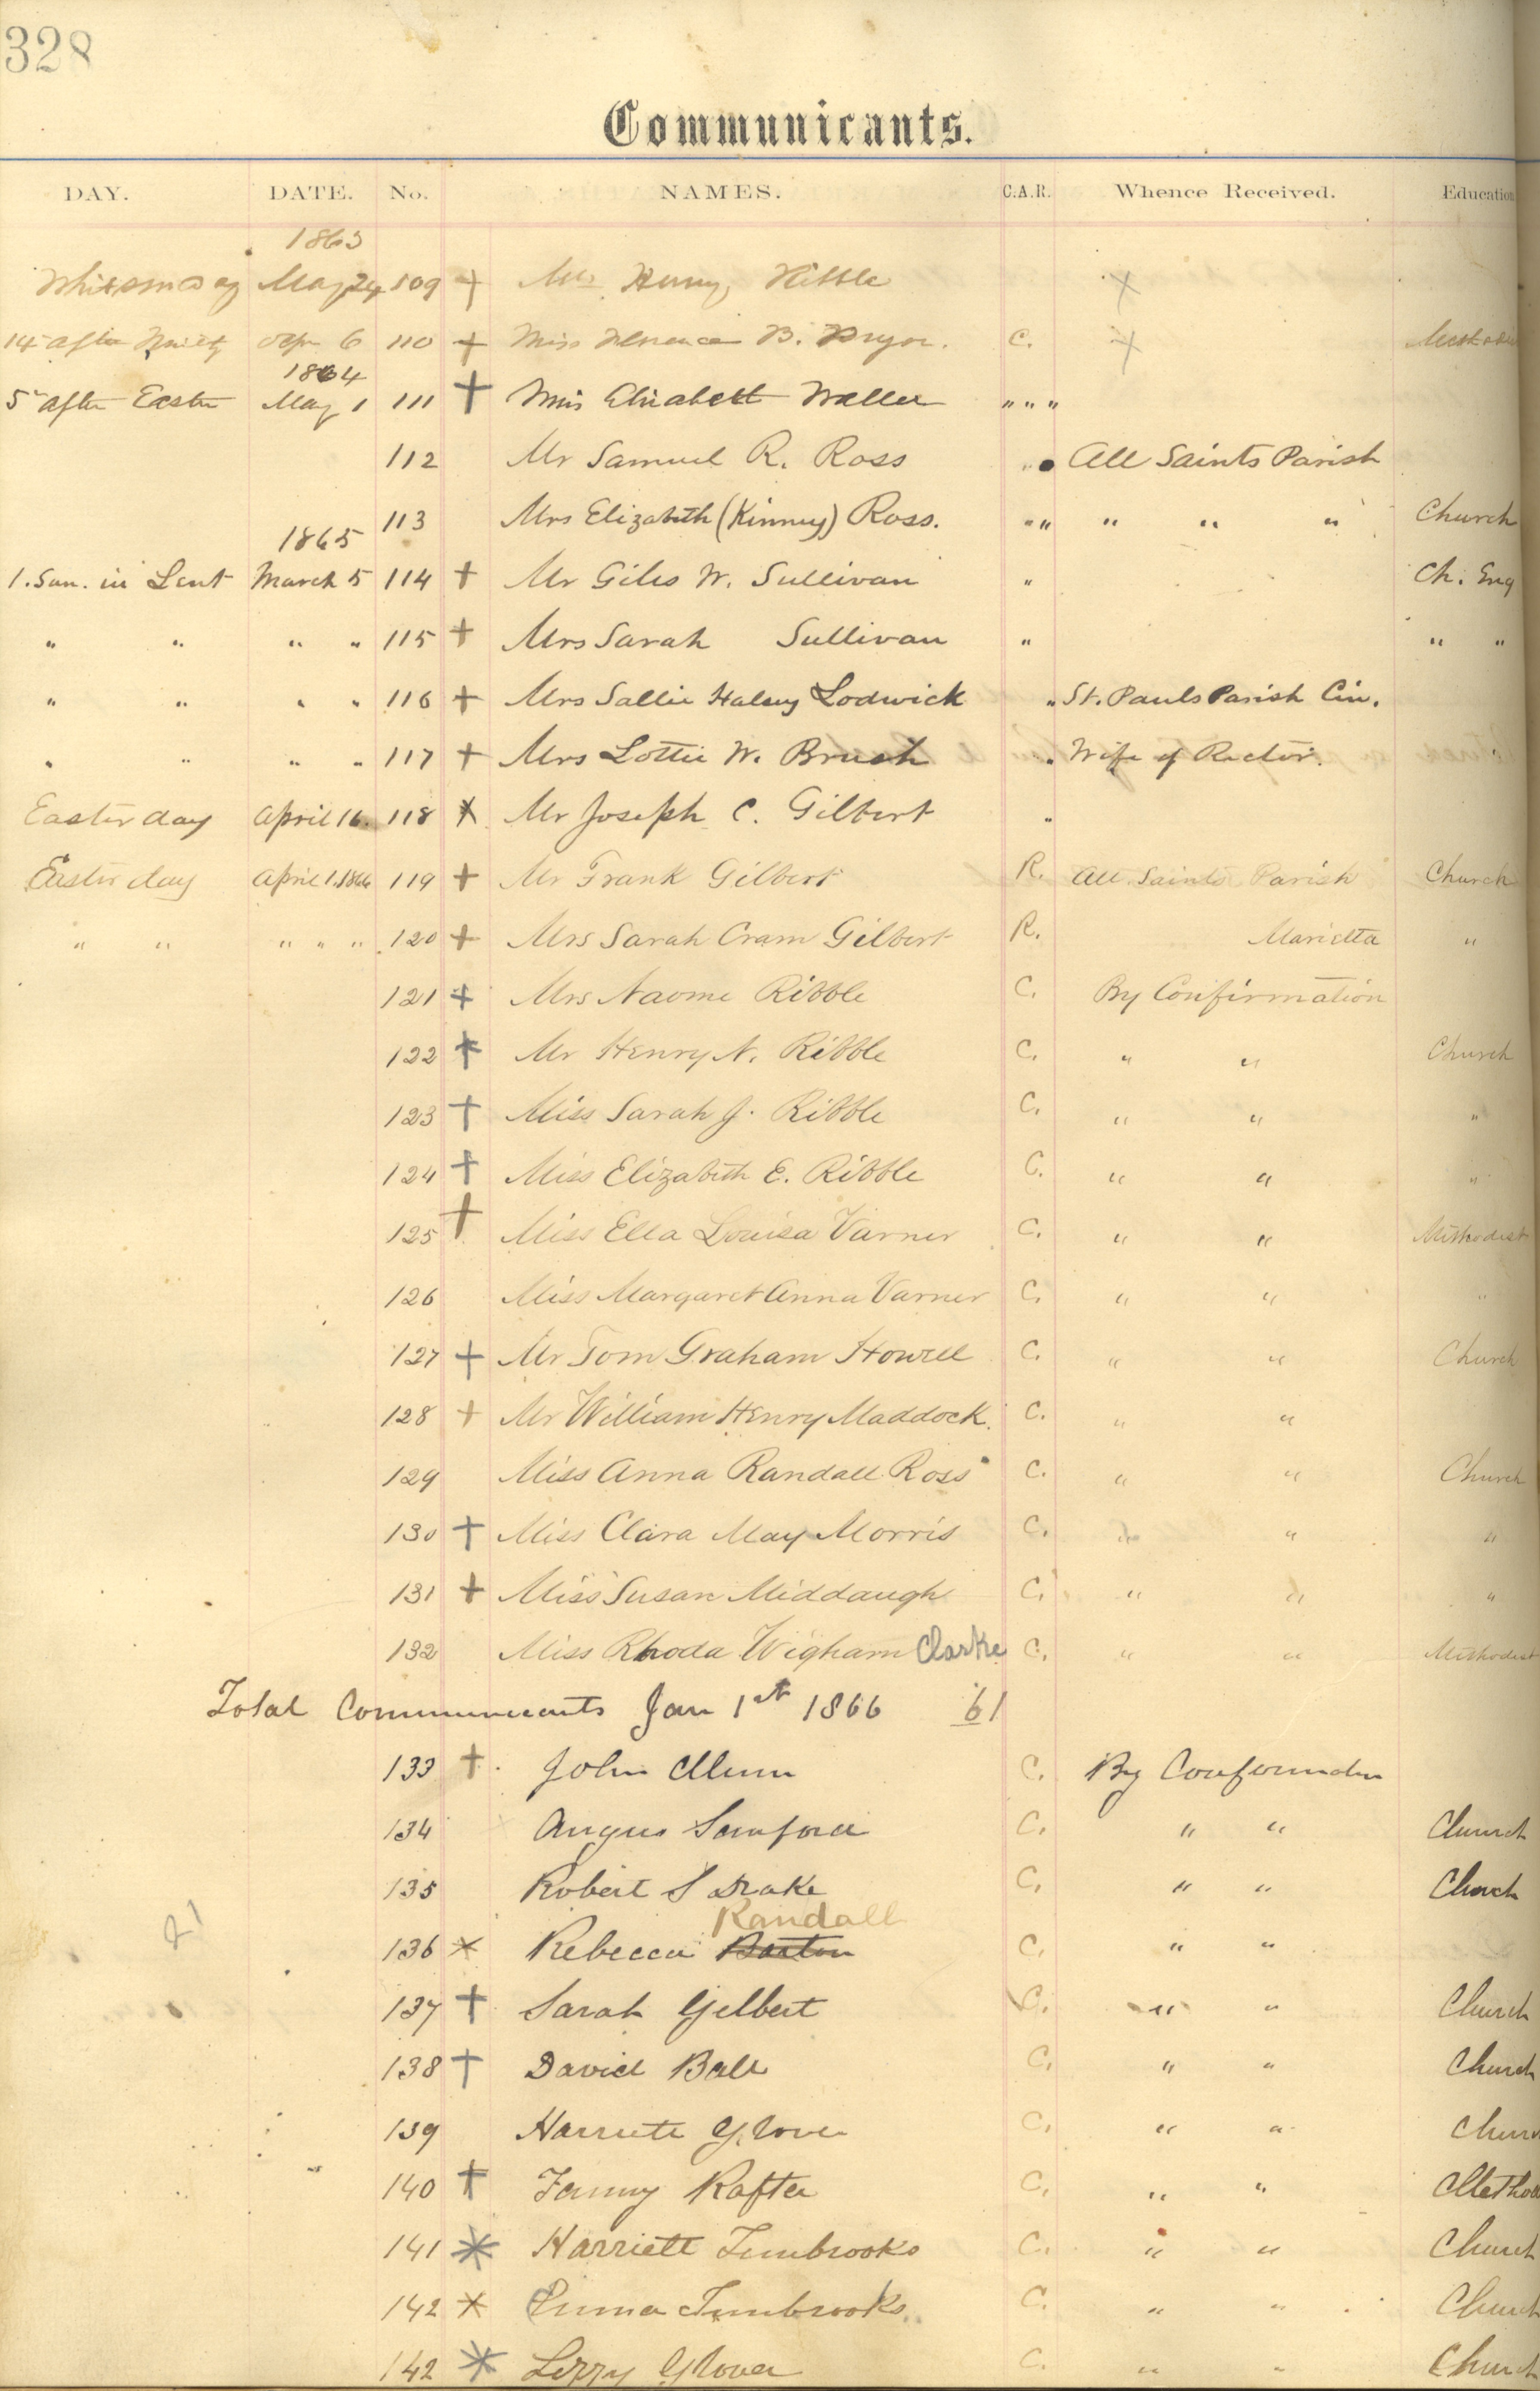 328
Communicants.
DAY. DATE. No. NAMES. C.A.R. Whence Received. Education
1863
Whitsunday May 24 109 + Mr Henry Ribble ×
14 after Trinity Sep 6 110 + Miss Florence B. Pryor. C. ×
1864
5 after Easter May 1 111 + Elizabeth Waller " " "
112 Mr Samuel R. Ross " All Saints Parish
113 Mrs Elizabeth (Kinney) Ross. " " " " " Church
1865
1. Sun. in Lent March 5 114 + Mr Giles W. Sullivan " Ch. Eng
" " " " 115 + Mrs Sarah Sullivan " " "
" " " " 116 + Mrs Sallie Halsey Lodwick " St. Pauls Parish Cin.
" " " " 117 + Mrs Lottie W. Brush " Wife of Rector. "
Easter day April 16. 118 × Mr Joseph C. Gilbert "
Easter day April 1. 1866 119 + Mr Frank Gilbert R. All Saints Parish Church
" " " " " 120 + Mrs Sarah Cram Gilbert R. Marietta "
121 + Mrs Naome Ribble C. By Confirmation
122 + Mr Henry N. Ribble C. " " Church
123 + Miss Sarah J. Ribble C. " " "
124 + Miss Elizabeth E. Ribble C. " " "
125 + Miss Ella Louisa Varner C. " " Methodist
126 Miss Margaret Anna Varner C. " " "
127 + Mr Tom Graham Howell C. " " Church
128 + Mr William Henry Maddock. C. " "
129 Miss Anna Randall Ross C. " " Church
130 + Miss Clara May Morris C. " " "
131 + Miss Susan Middaugh C. " " "
132 Miss Rhoda Wigham Clarke C. " " Methodist
Total Communicants Jan 1st 1866 61
133 + John Munn C. By Confirmation
134 Angus Samford C. " " Church
135 Robert S Drake C. " " Church
Randall
136 × Rebecca Barton C. " "
137 + Sarah Gilbert C. " " Church
138 + David Ball C. " " Church
139 Harriete Glover C. " " Churc
140 + Fanny Rafter C. " " Methodi
141 * Harriett Timbrooks C. " " Church
142 × Emma Timbrooks C. " " Church
142 * Lizzy Glover C. " " Church